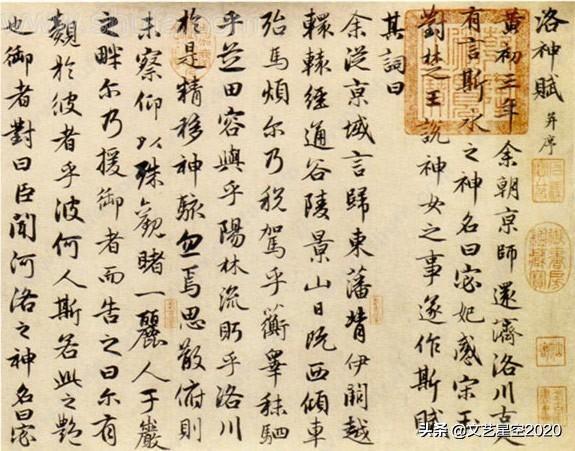 洛神賦 并序
黃初三年余朝京師還濟洛川古人
有言斯水之神名曰宓妃感宋玉
對楚王說神女之事遂作斯賦
其詞曰
余從京域言歸東藩背伊闕越
轘轅經通谷陵景山日既西傾車
殆馬煩尔乃稅駕乎蘅皋秣駟
乎芝田容與乎陽林流眄乎洛川
於是精移神駭忽焉思散俯則
未察仰以殊觀睹一麗人于巖
之畔尔乃援御者而告之曰尔有
覿於彼者乎彼何人斯若此之艷
也御者對曰臣聞河洛之神名曰宓
头条 @文艺星空2020